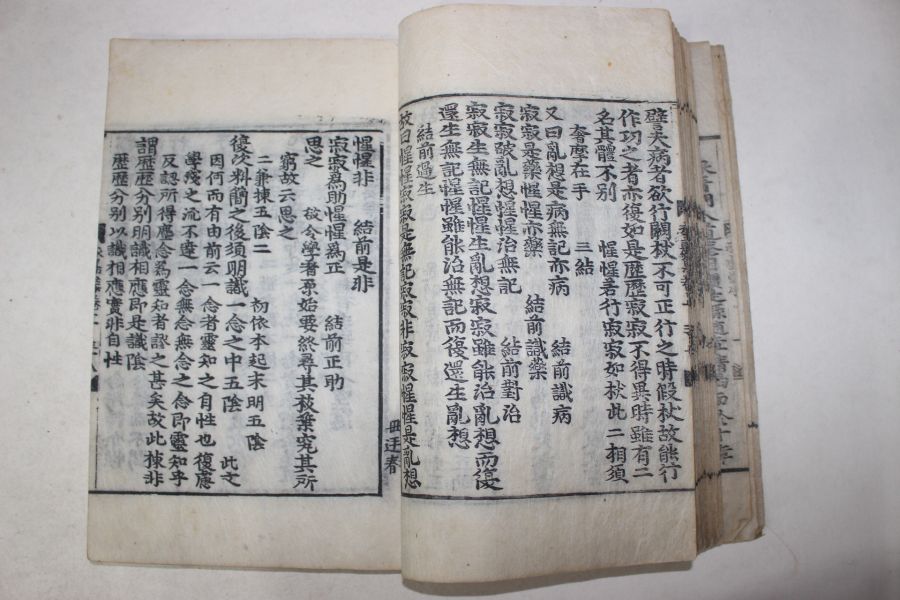 譬夫病者欲行闕杖不可正行之時假杖故能行
作功之者亦復如是歷歷寂寂不得異時雖有二
名其體不別　惺惺若行寂寂如杖此二相須
奢摩在手　三結
又曰亂想是病無記亦病　結前識病
寂寂是藥惺惺亦藥　結前識藥
寂寂破亂想惺惺治無記　結前對治
寂寂生無記惺惺生亂想寂寂雖能治亂想而復
還生無記惺惺雖能治無記而復還生亂想
結前過生
故曰惺惺寂寂是無記寂寂非寂寂惺惺是亂想
惺惺非　結前是非
寂寂爲助惺惺爲正　結前正助
思之　故令學者原始要終尋其枝葉究其所
窮故云思之
二兼揀五陰二　初依本起末明五陰
復次料簡之後須明識一念之中五陰　此文
因何而有由前云一念者靈知之自性也復慮
學淺之流不達一念無念之念即靈知乎
及認所得塵念爲靈知者謬之甚矣故此揀非
謂歷歷分別明識相應即是識陰
歷歷分別以識相應實非自性